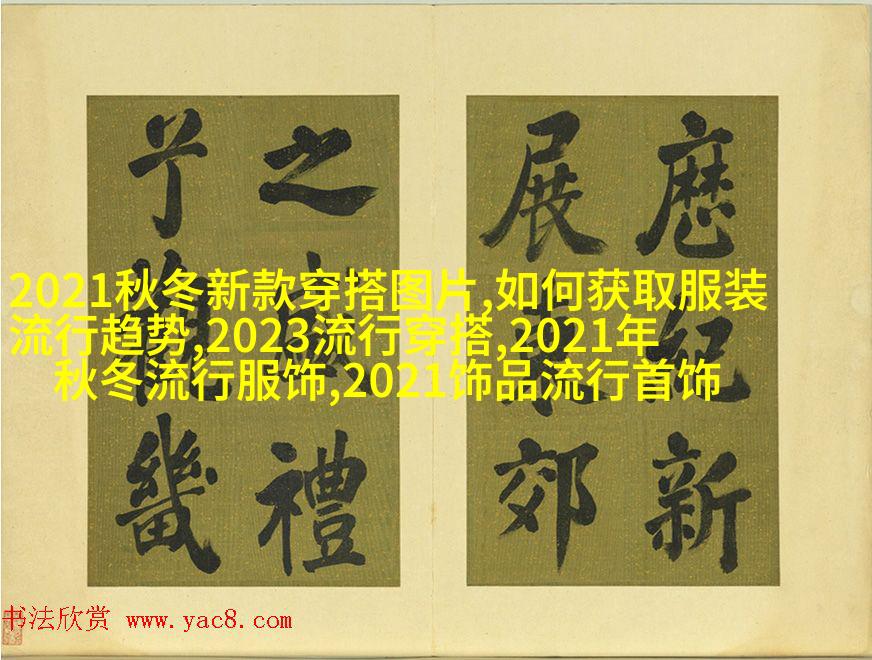 2021秋冬新款穿搭图片,如何获取服装
流行趋势,2023流行穿搭,2021年
秋冬流行服饰,2021饰品流行首饰
歷紀新
展郊
之禮
畿
书法欣赏 www.yac8.com